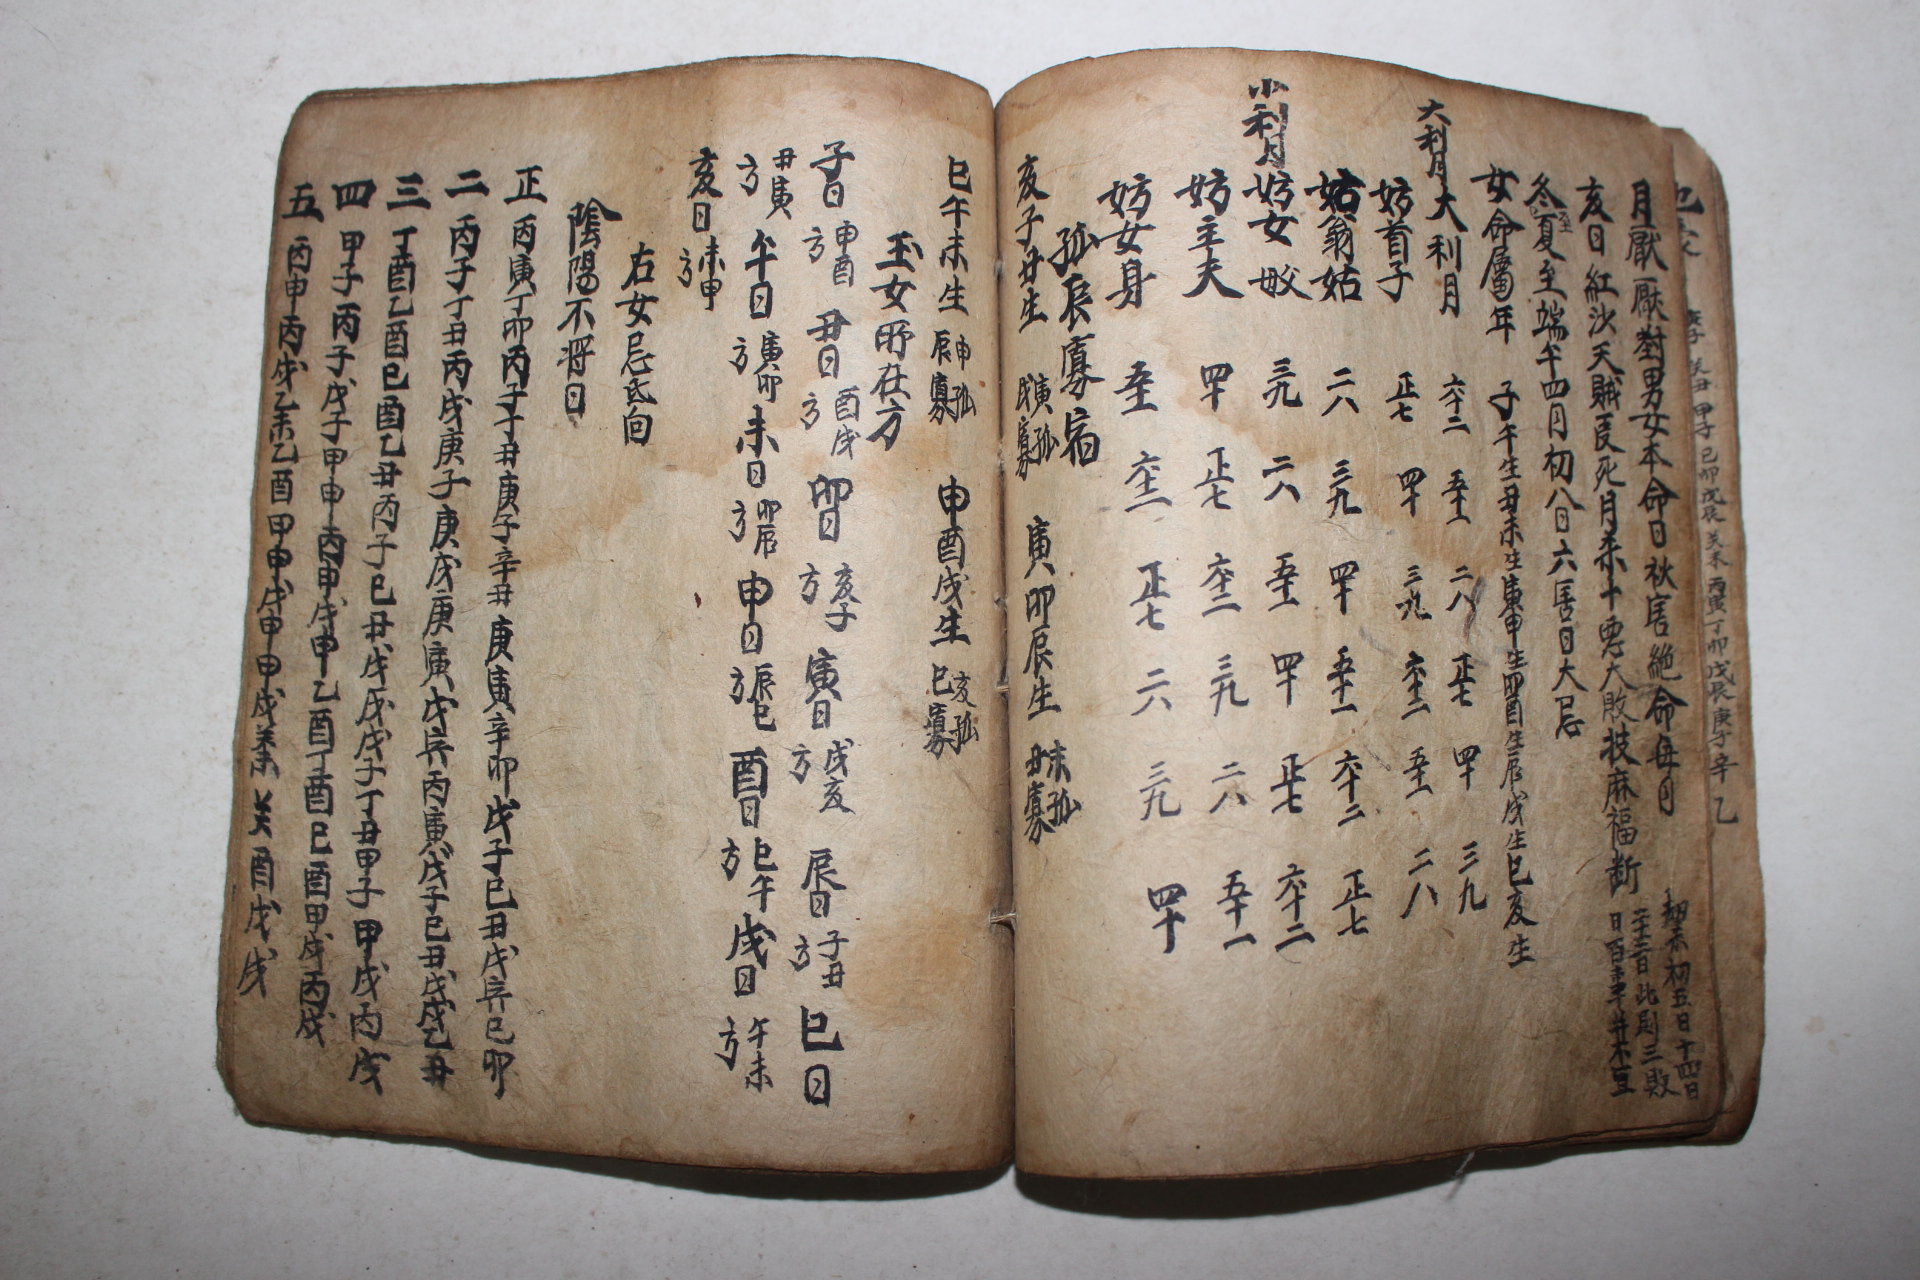 月厭厭對男女本命日秋害絶命每月
初五日十四日
二十三日此則三敗
日百事并不宜
亥日紅沙天賊長死月杀十惡大敗披麻福斷
冬夏至端午四月初八日六害日大忌
女命屬年 子午生丑未生寅申生卯酉生辰戌生巳亥生
大利月
大利月 六十二 五十一 二八 正七 四十 三九
妨首子 正七 四十 三九 六十二 五十一 二八
姑翁姑 二八 三九 四十 五十一 六十二 正七
小利月
妨女母 三九 二八 五十一 四十 正七 六十二
妨主夫 四十 正七 六十二 三九 二八 五十一
妨女身 五十一 六十二 正七 二八 三九 四十
孤辰寡宿
亥子丑生 寅孤戌寡 寅卯辰生 未孤丑寡
巳午未生 申孤辰寡 申酉戌生 亥孤巳寡
玉女所在方
子日 申酉方 丑日 酉戌方 卯日 亥子方 寅日 戌亥方 辰日 子丑方 巳日
丑寅方 午日 寅卯方 未日 卯辰方 申日 辰巳方 酉日 巳午方 戌日 午未方
亥日 未申方
右女忌氐向
陰陽不將日
正 丙寅丁卯丙子丁丑庚子辛丑庚寅辛卯戊子己丑戊寅己卯
二 丙子丁丑丙戌庚子庚戌庚寅戊寅丙寅戊子己丑戊戌乙丑
三 丁酉乙酉己酉乙丑丙子己丑戊戌戊子丁丑甲子甲戌丙戌
四 甲子丙子戊子甲申丙申戊申乙酉丁酉己酉甲戌丙戌
五 丙申丙戌乙未乙酉甲申戊申甲戌癸未癸酉戊戌